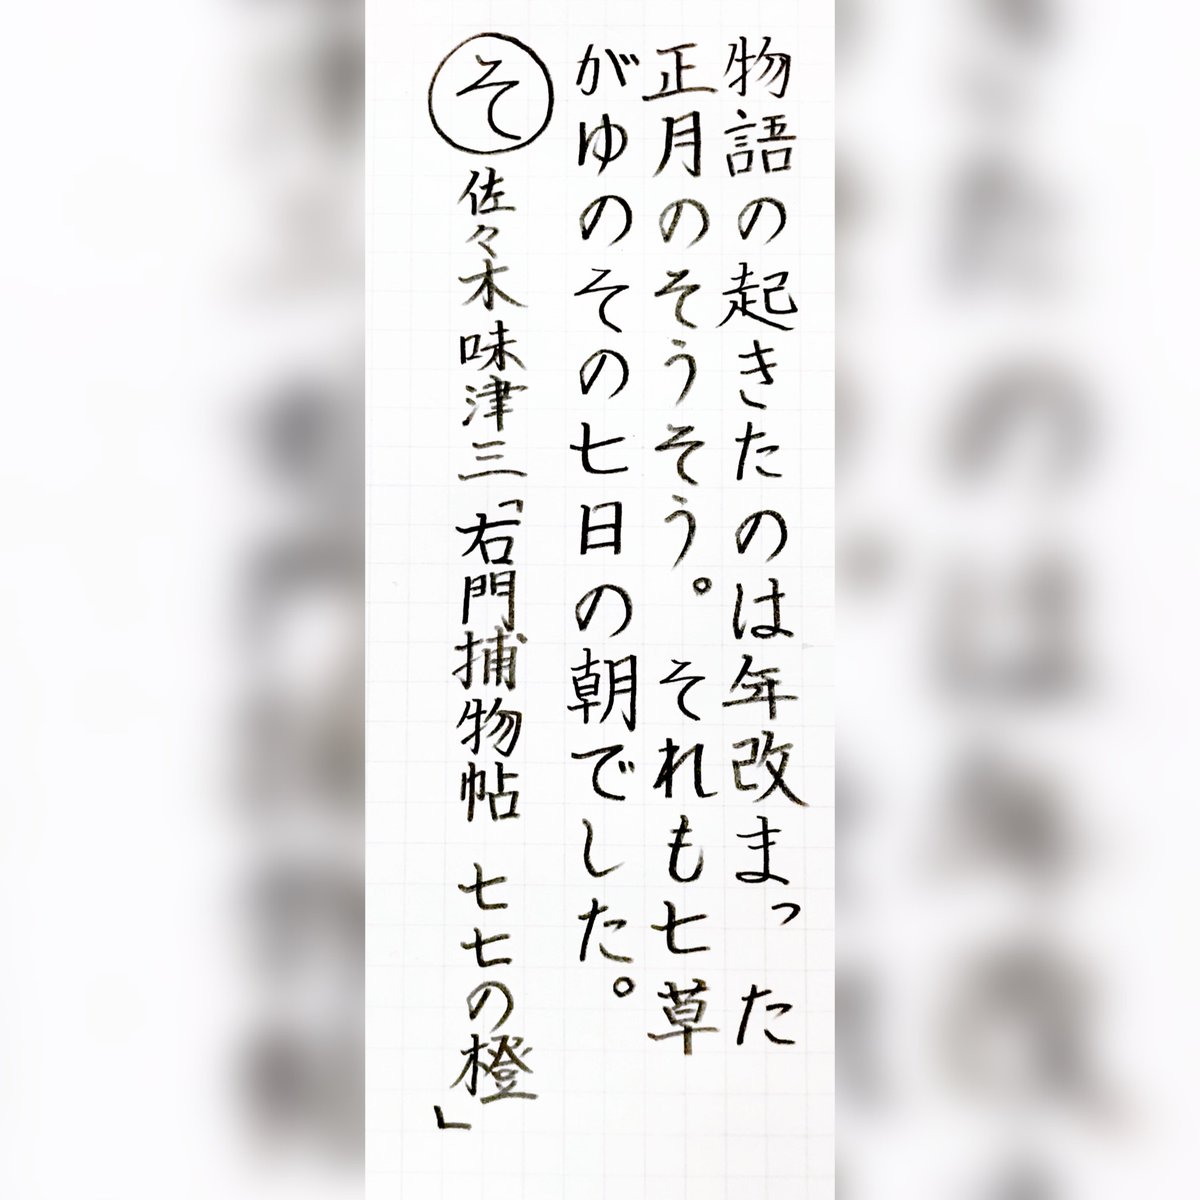 物語の起きたのは年改まった
正月のそうそう。それも七草
がゆのその七日の朝でした。
そ 佐々木味津三「右門捕物帖 七七の橙」